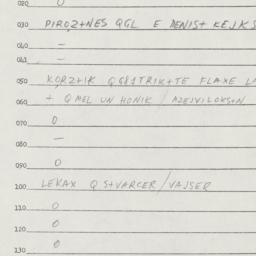 020 0
030 PIROZ+NES QGL E DENIS+ KEJKS
040 —
041 —
050 KORZ+IK QGE1TRIK+TE FLAXE LA
060 + QMEL UN HONIK / AZEJVILOKS+N
070 0
080 —
090 0
100 LEKAX Q S+VARCER/VAJSER
110 0
120 0
130 0